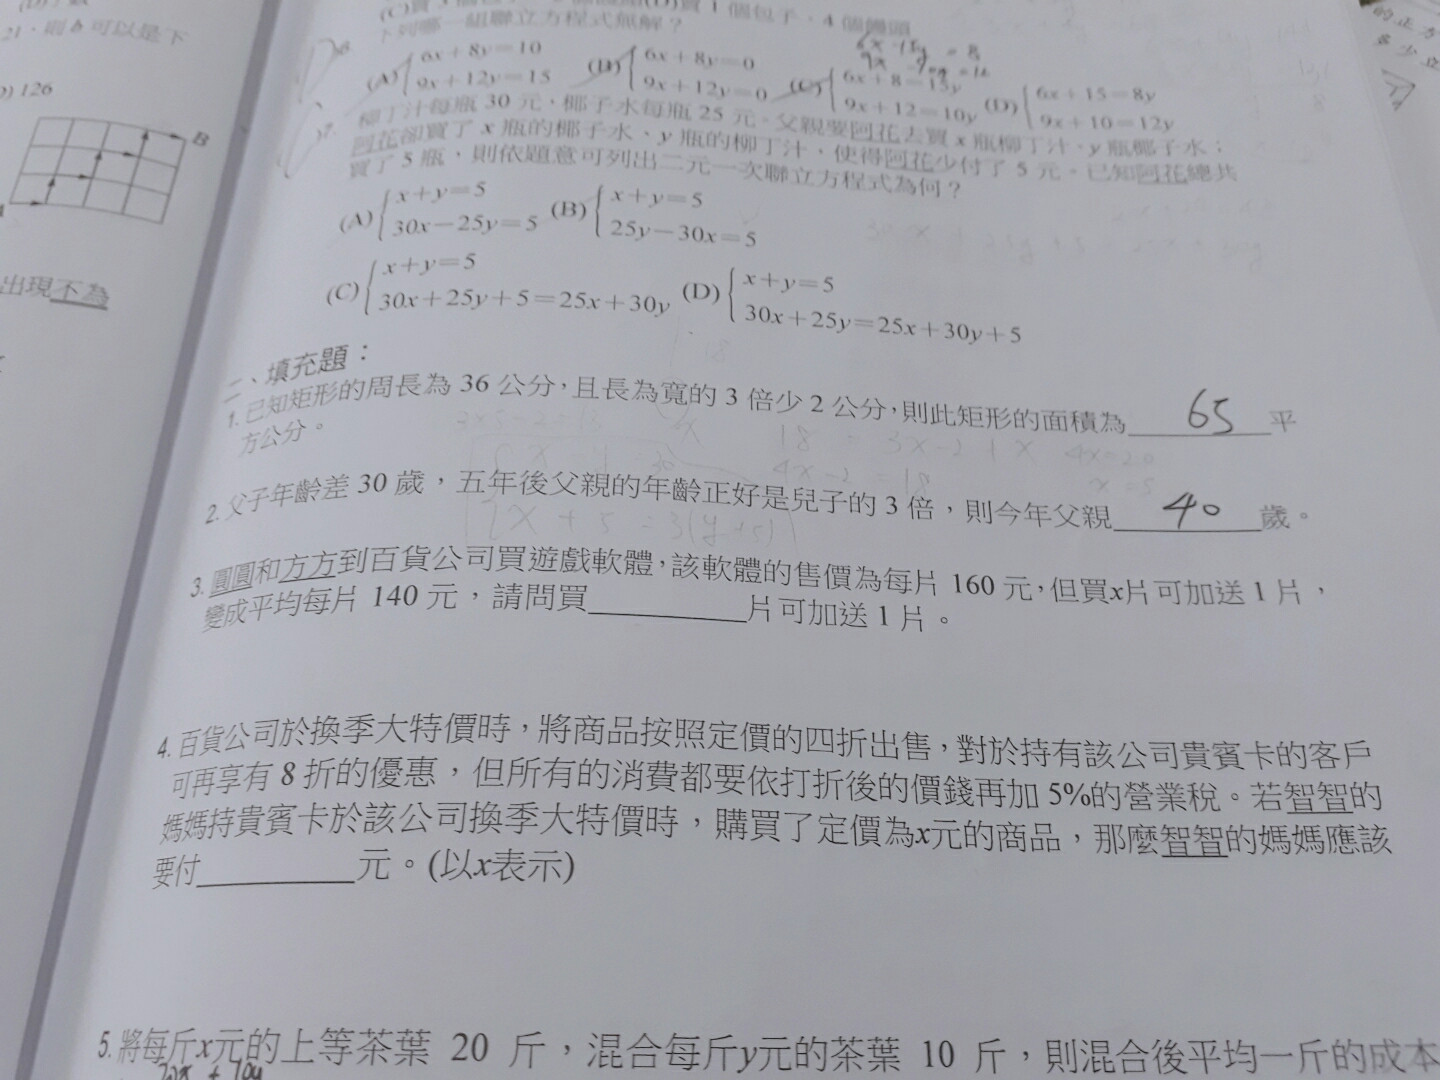 21，則 b 可以是下
126
B
出現不為
下列哪一組聯立方程式無解？
(A) 6x＋8y＝10
9x＋12y＝15
(B) 6x＋8y＝0
9x＋12y＝0
(C) 6x＋8＝15y
9x＋12＝10y
(D) 6x＋15＝8y
9x＋10＝12y
7. 柳丁汁每瓶 30 元、椰子水每瓶 25 元。父親要阿花去買 x 瓶柳丁汁、y 瓶椰子水；
阿花卻買了 x 瓶的椰子水、y 瓶的柳丁汁，使得阿花少付了 5 元。已知阿花總共
買了 5 瓶，則依題意可列出二元一次聯立方程式為何？
(A) x＋y＝5
30x－25y＝5
(B) x＋y＝5
25y－30x＝5
(C) x＋y＝5
30x＋25y＋5＝25x＋30y
(D) x＋y＝5
30x＋25y＝25x＋30y＋5
二、填充題：
1. 已知矩形的周長為 36 公分，且長為寬的 3 倍少 2 公分，則此矩形的面積為 65 平
方公分。
18 = 3x-2+x
4x-2 = 18
4x=20
x=5
2. 父子年齡差 30 歲，五年後父親的年齡正好是兒子的 3 倍，則今年父親 40 歲。
x+5=3(y+5)
3. 圓圓和方方到百貨公司買遊戲軟體，該軟體的售價為每片 160 元，但買x片可加送 1 片，
變成平均每片 140 元，請問買＿＿＿＿片可加送 1 片。
4. 百貨公司於換季大特價時，將商品按照定價的四折出售，對於持有該公司貴賓卡的客戶
可再享有 8 折的優惠，但所有的消費都要依打折後的價錢再加 5%的營業稅。若智智的
媽媽持貴賓卡於該公司換季大特價時，購買了定價為x元的商品，那麼智智的媽媽應該
要付＿＿＿＿元。(以x表示)
5. 將每斤x元的上等茶葉 20 斤，混合每斤y元的茶葉 10 斤，則混合後平均一斤的成本
20x + 10y